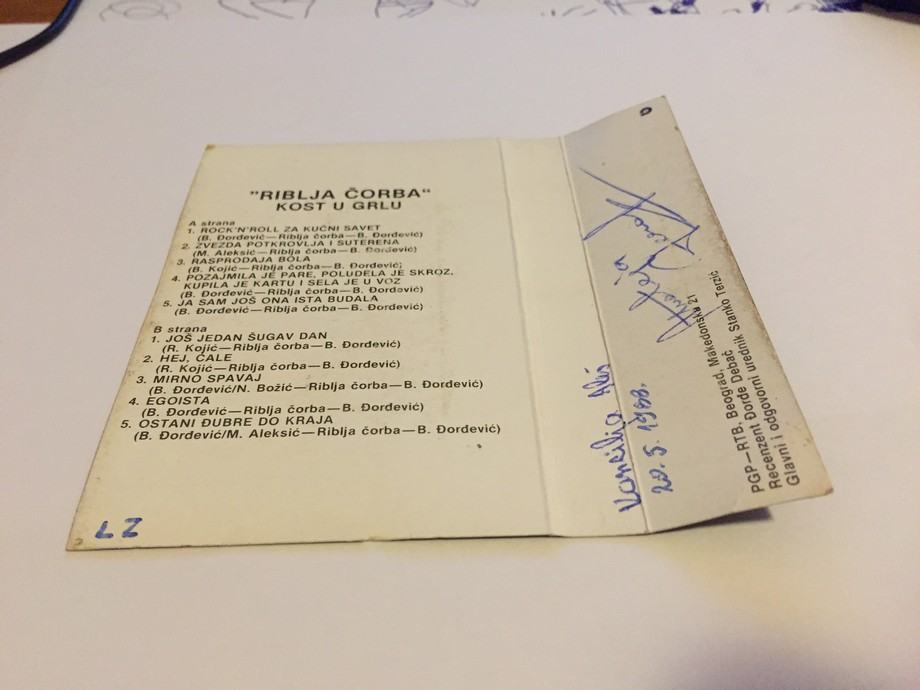 "RIBLJA ČORBA"
KOST U GRLU
A strana
1. ROCK'N'ROLL ZA KUĆNI SAVET
(B. Đorđević—Riblja čorba—B. Đorđević)
2. ZVEZDA POTKROVLJA I SUTERENA
(M. Aleksić—Riblja čorba—B. Đorđević)
3. RASPRODAJA BOLA
(B. Kojić—Riblja čorba—B. Đorđević)
4. POZAJMILA JE PARE, POLUDELA JE SKROZ,
KUPILA JE KARTU I SELA JE U VOZ
(B. Đorđević—Riblja čorba—B. Đorđević)
5. JA SAM JOŠ ONA ISTA BUDALA
(B. Đorđević—Riblja čorba—B. Đorđević)
B strana
1. JOŠ JEDAN ŠUGAV DAN
(R. Kojić—Riblja čorba—B. Đorđević)
2. HEJ, ĆALE
(R. Kojić—Riblja čorba—B. Đorđević)
3. MIRNO SPAVAJ
(B. Đorđević/N. Božić—Riblja čorba—B. Đorđević)
4. EGOISTA
(B. Đorđević—Riblja čorba—B. Đorđević)
5. OSTANI ĐUBRE DO KRAJA
(B. Đorđević/M. Aleksić—Riblja čorba—B. Đorđević)
LZ
20.5.1988.
PGP—RTB, Beograd, Makedonska 21
Recenzent Đorđe Debač
Glavni i odgovorni urednik Stanko Terzić